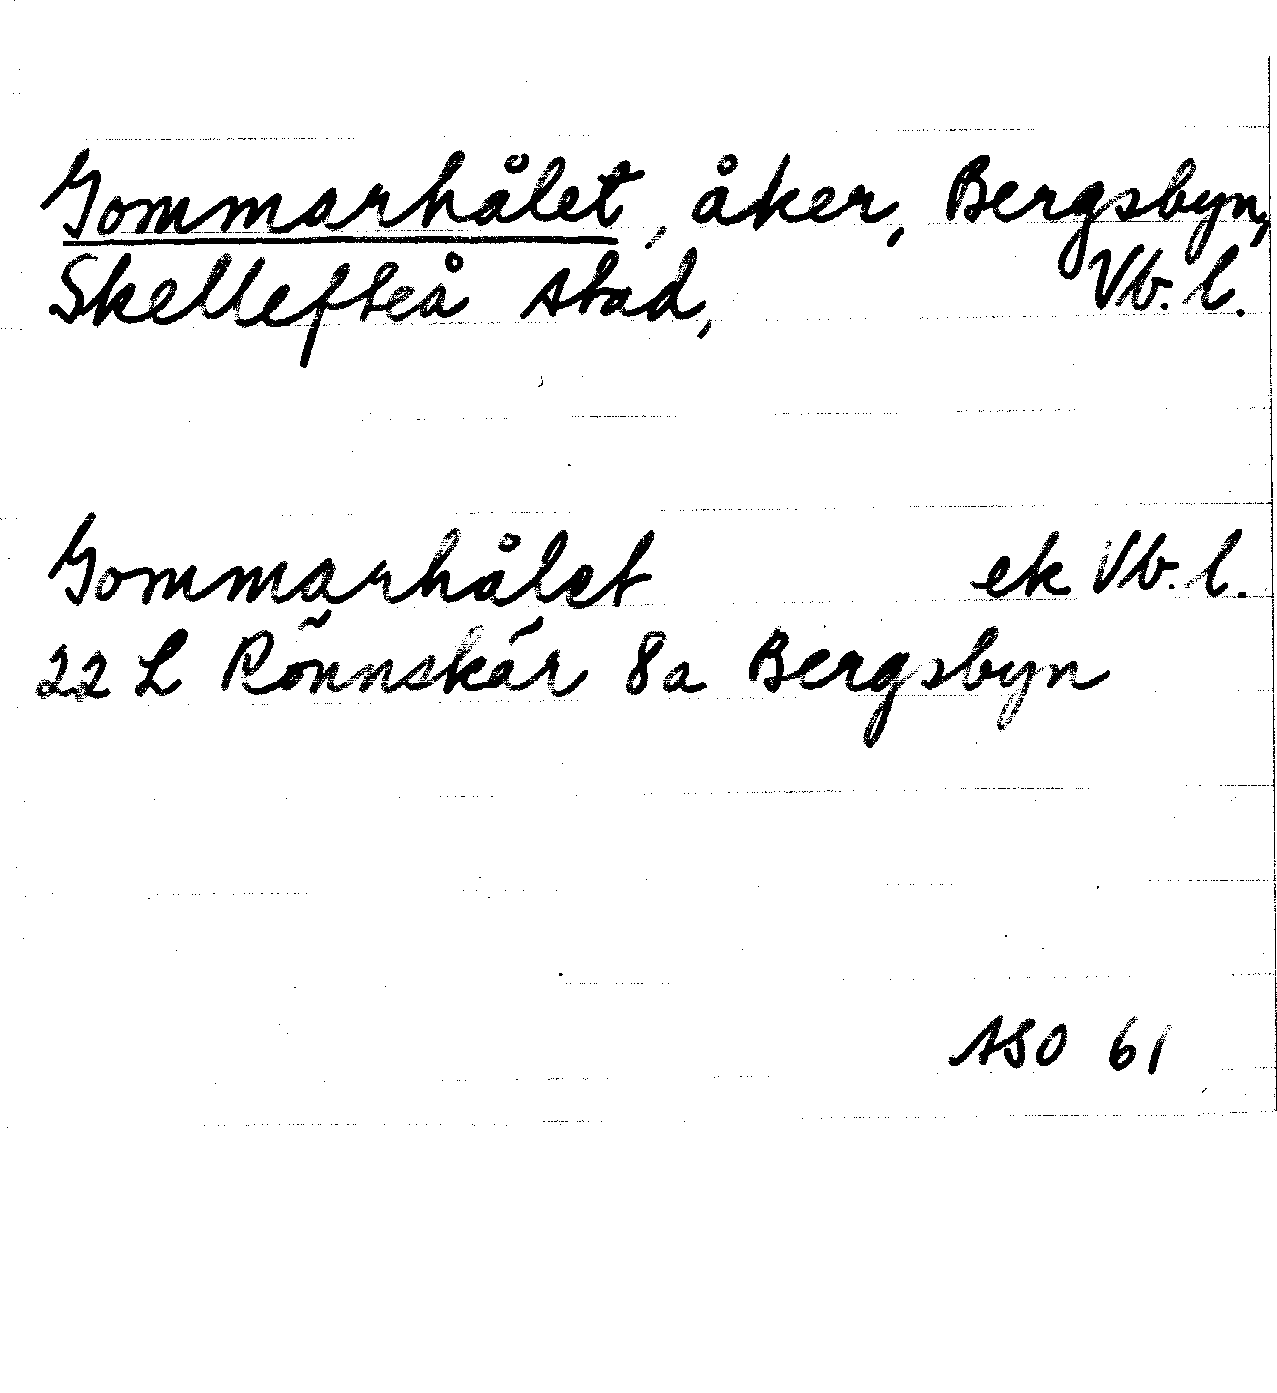 Gommarhålet, åker, Bergsbyn,
Skellefteå stad, Vb. l.
Gommarhålet ek Vb. l.
22 L Rönnskär 8a Bergsbyn
ASO 61